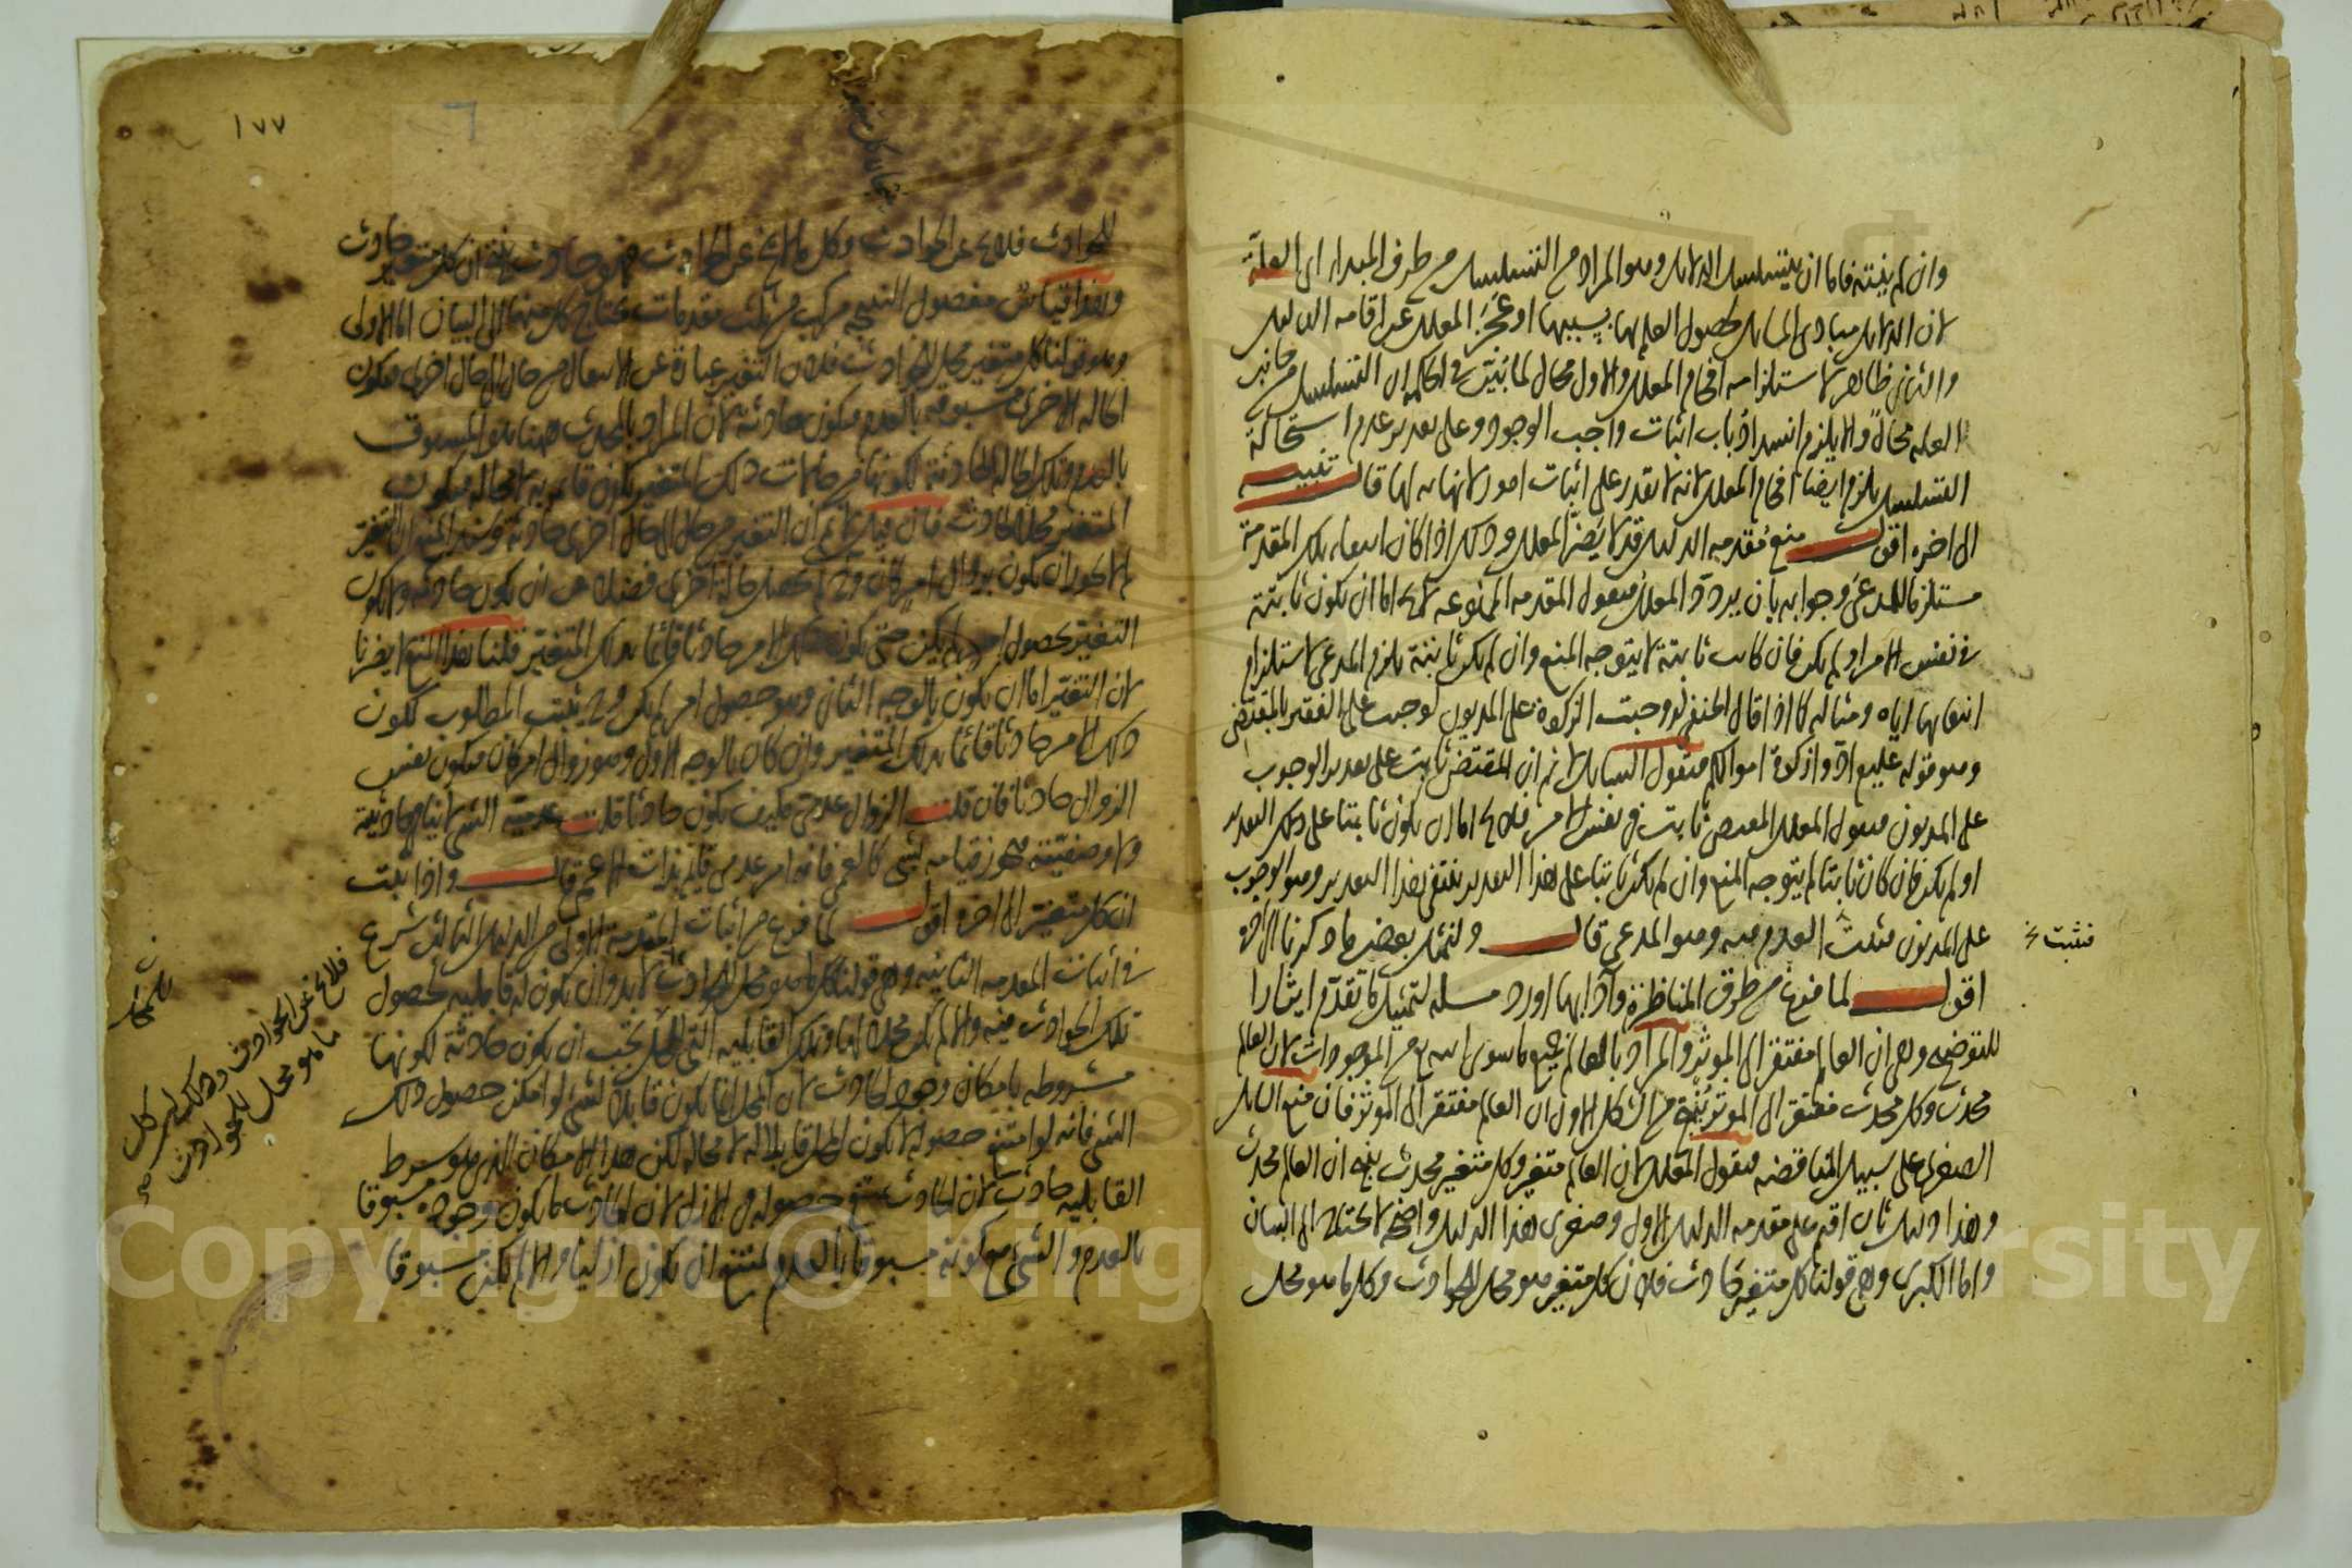 وان لم ينته فاما ان يتسلسل الدلايل وهو المراد من التسلسل من طرف المبداء اى العلة
لان الدلايل مبادى المسايل لحصول العلم بها بسببها او عجز المعلل عن اقامه الدليل
والثانى ظاهر لاستلزامه افحام المعلل والاول محال لما ثبت فى الحكمه ان التسلسل من جانب
العله محال والا يلزم انسداد باب اثبات واجب الوجود وعلى تقدير عدم استحالة
التسلسل يلزم ايضا افحام المعلل لانه لا يقدر على اثبات امور لا نهايه لها قال تنبيه
الى اخره اقول منع مقدمه الدليل قد لا يضر المعلل وذلك اذا كان انتفاء تلك المقدمة
مستلزما للمدعى وجوابه بان يردد المعلل فيقول المقدمه الممنوعه لا يخ اما ان يكون ثابتة
فى نفس الامر او لم يكن فان كانت ثابتة لا يتوجه المنع وان لم يكن ثابتة يلزم المدعى لاستلزام
انتفائها اياه ومثاله كما اذا قال الحنفى لو وجبت الزكوة على المديون لوجبت على الفقير بالمقتضى
وهو قوله عليم ادوا زكوة اموالكم فيقول السايل لا نم ان المقتضى ثابت على تقدير الوجوب
على المديون فيقول المعلل المقتضى ثابت فى نفس الامر فلا يخ اما ان يكون ثابتا على ذلك التقدير
او لم يكن فان كان ثابتا لم يتوجه المنع وان لم يكن ثابتا على هذا التقدير ينتفى هذا التقدير وهو الوجوب
على المديون فثبت العدم فيه وهو المدعى قال ولنمثل بعض ما ذكرنا الى اخره
فيثبت خ
اقول لما فرغ من طرق المناظرة وآدابها اورد مسله لتمثيل ما تقدم ايثارا
للتوضيح وهى ان العالم مفتقر الى الموثر والمراد بالعالم جميع ما سوى الله تع من الموجودات لان العالم
محدث وكل محدث مفتقر الى الموثر ينتج من الشكل الاول ان العالم مفتقر الى الموثر فان منع السايل
الصغرى على سبيل المناقضه فيقول المعلل ان العالم متغير وكل متغير محدث ينتج ان العالم محدث
وهذا دليل ثان اقيم على مقدمه الدليل الاول وصغرى هذا الدليل واضحة لا يحتاج الى البيان
واما الكبرى وهى قولنا كل متغير حادث فلان كل متغير هو محل للحوادث وكل ما هو محل
١٧٧
للحوادث فلا يخ عن الحوادث وكل ما لا يخ عن الحوادث فهو حادث ينتج ان كل متغير حادث
وهذا قياس مفصول النتيجه مركب من ثلث مقدمات يحتاج كل منها الى البيان اما الاولى
وهو قولنا كل متغير محل للحوادث فلان التغير عبارة عن الانتقال من حال الى حال اخرى فيكون
الحاله الاخرى مسبوقه بالعدم فيكون حادثه لان المراد بالمحدث ههنا هو المسبوق
بالعدم وتلك الحاله الحادثة لكونها من حالات ذلك المتغير يكون قائمه به لا محاله فيكون
المتغير محلا للحادث فان قيل لا نم ان التغير من حال الى حال اخرى حادثة وسند المنع ان التغير
لم لا يجوز ان يكون بزوال امر كان وح لم يحصل حالة اخرى فضلا عن ان يكون حادثه ولا يكون
التغير بحصول امر لم يكن حتى يكون ذلك الامر حادثا قائما بذلك المتغير قلنا هذا المنع لا يضرنا
لان التغير اما ان يكون بالوجه الثانى وهو حصول امر لم يكن وح يثبت المطلوب لكون
ذلك الامر حادثا قائما بذلك المتغير وان كان بالوجه الاول وهو زوال امر كان فيكون نفس
الزوال حادثا فان قلت الزوال عدمى فكيف يكون حادثا قلت عدمية الشى لا ينافى حادثيته
ولا وصفيته فيجوز قيامه بشى كالعمى فانه امر عدمى قايم بذات الاعمى قال واذا ثبت
ان كل متغير الى اخره اقول لما فرغ من اثبات المقدمة الاولى من الدليل الثالث شرع
فى اثبات المقدمه الثانيه وهى قولنا كل ما هو محل للحوادث لابد وان يكون له قابليه لحصول
فلا يخ عن الحوادث وذلك لان كل
ما هو محل للحوادث
تلك الحوادث فيه والا لم يكن محلا لها وتلك القابليه التى للمحل يجب ان يكون حادثة لكونها
مشروطه بامكان وجود الحادث لان المحل انما يكون قابلا لشى لو امكن حصول ذلك
الشى فانه لو امتنع حصوله لا يكون المحل قابلا له لا محاله لكن هذا الامكان الذى هو شرط
القابليه حادث لان الحادث يمتنع حصوله فى الازل لان الحادث ما يكون وجوده مسبوقا
بالعدم والشى مع كونه مسبوقا بالعدم يمتنع ان يكون ازليا والا لم يكن مسبوقا
Copyright © King Saud University